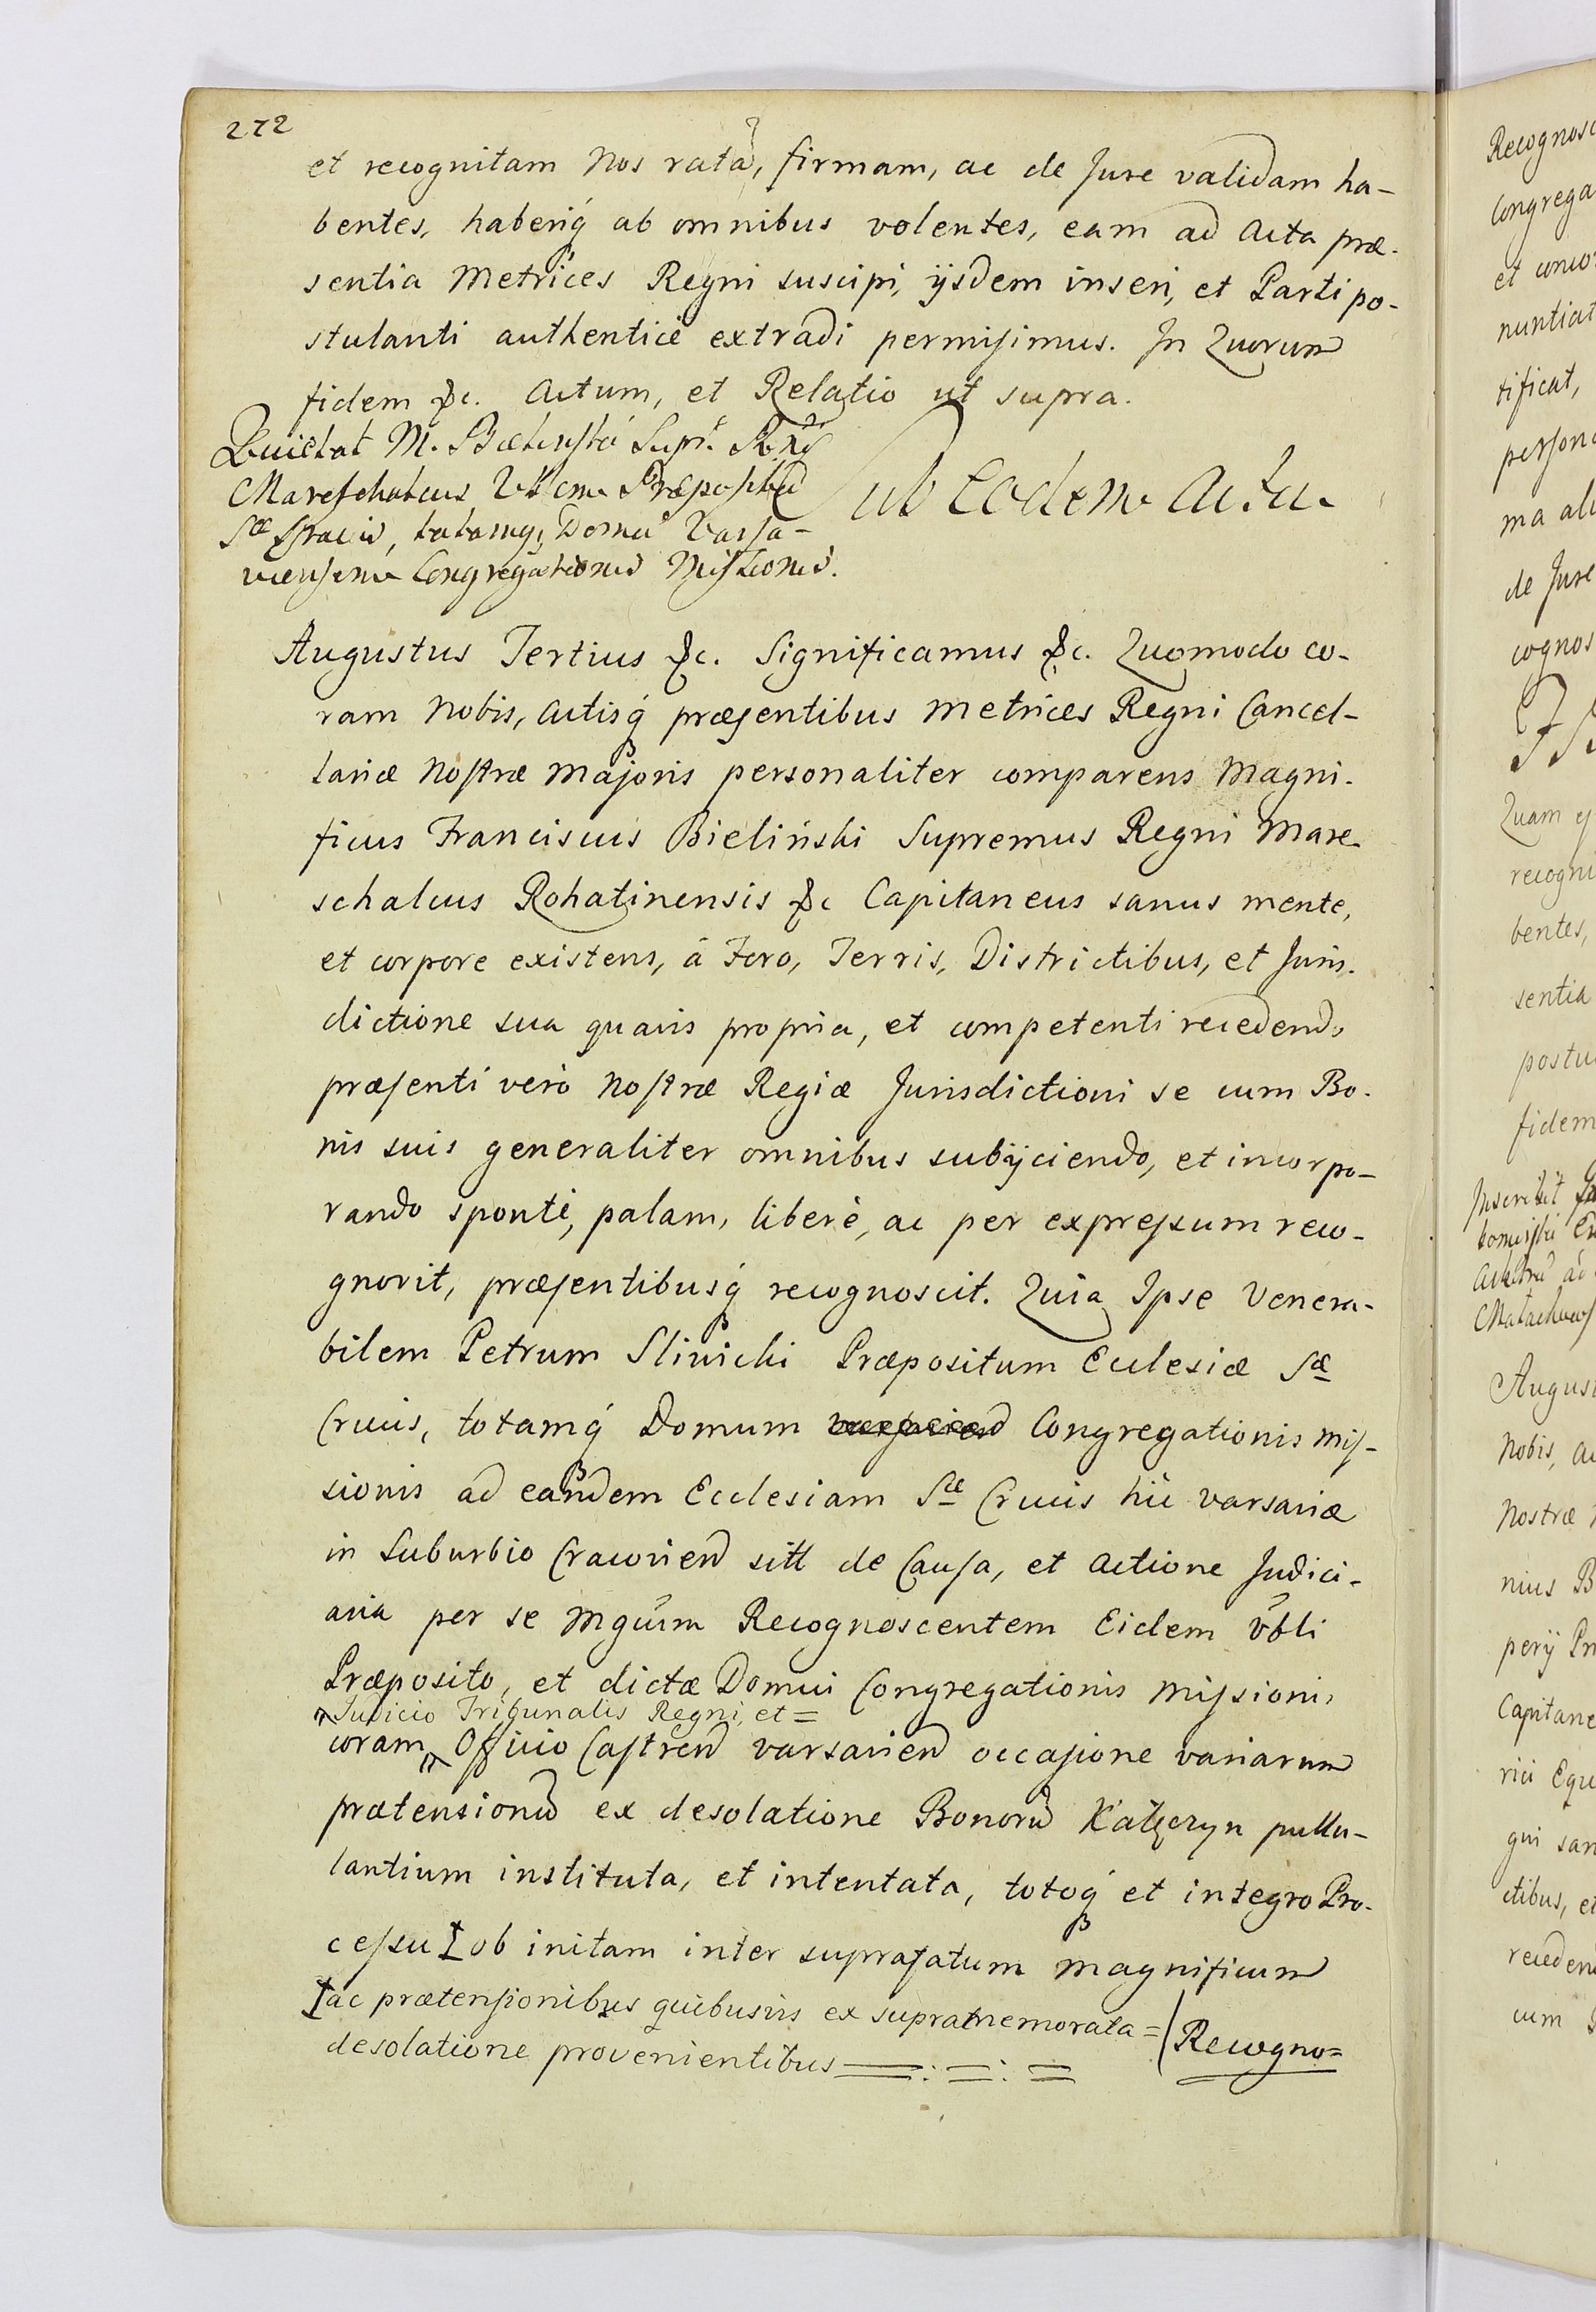 272
et recognitam Nos ratã, firmam, ac de Jure validam ha-
bentes, haberiq́ ab omnibus volentes, eam ad Acta præ-
sentia Metrices Regni suscipi, ijsdem inseri, et Parti po-
stulanti authenticè extradi permisimus. In Quorum
fidem &c. Actum, et Relatio ut supra.
Quietat M. Bielinski Supr. Regni
Mareschalcus Vblem Præpositũ
Sæ Crucis, totamq; Domũ Varsa-
viensem Congregationis Missionis.
Sub Eodem Actu.
Augustus Tertius &c. Significamus &c. Quomodo co-
ram Nobis, Actisq́ præsentibus Metrices Regni Cancel-
lariæ Nostræ Majoris personaliter comparens Magni-
ficus Franciscus Bieliński Supremus Regni Mare-
schalcus Rohatinensis &c Capitaneus sanus mente,
et corpore existens, á Foro, Terris, Districtibus, et Juris-
dictione sua quavis propria, et competenti recedendo
præsenti verò Nostræ Regiæ Jurisdictioni se cum Bo-
nis suis generaliter omnibus subijciendo, et incorpo-
rando spontè, palam, liberè, ac per expressum reco-
gnovit, præsentibusq́ recognoscit. Quia Ipse Venera-
bilem Petrum Sliwicki Præpositum Ecclesiæ Sæ
Crucis, totamq́ Domum Congregationis Mis-
sionis ad eandem Ecclesiam Sæ Crucis hic Varsaviæ
in Suburbio Cracovien sitt de Causa, et Actione Judici-
aria per se Mgcum Recognoscentem Eidem Vbli
Præposito, et dictæ Domui Congregationis Missionis
Judicio Tribunalis Regni, et =
coram Officio Castren Varsavien occasione variarum
prætensionũ ex desolatione Bonorũ Kątęczyn pullu-
lantium instituta, et intentata, totoq́ et integro Pro-
cessu ob initam inter suprafatum Magnificum
ac prætensionibus quibusvis ex supramemorata =
desolatione provenientibus
Recogno=